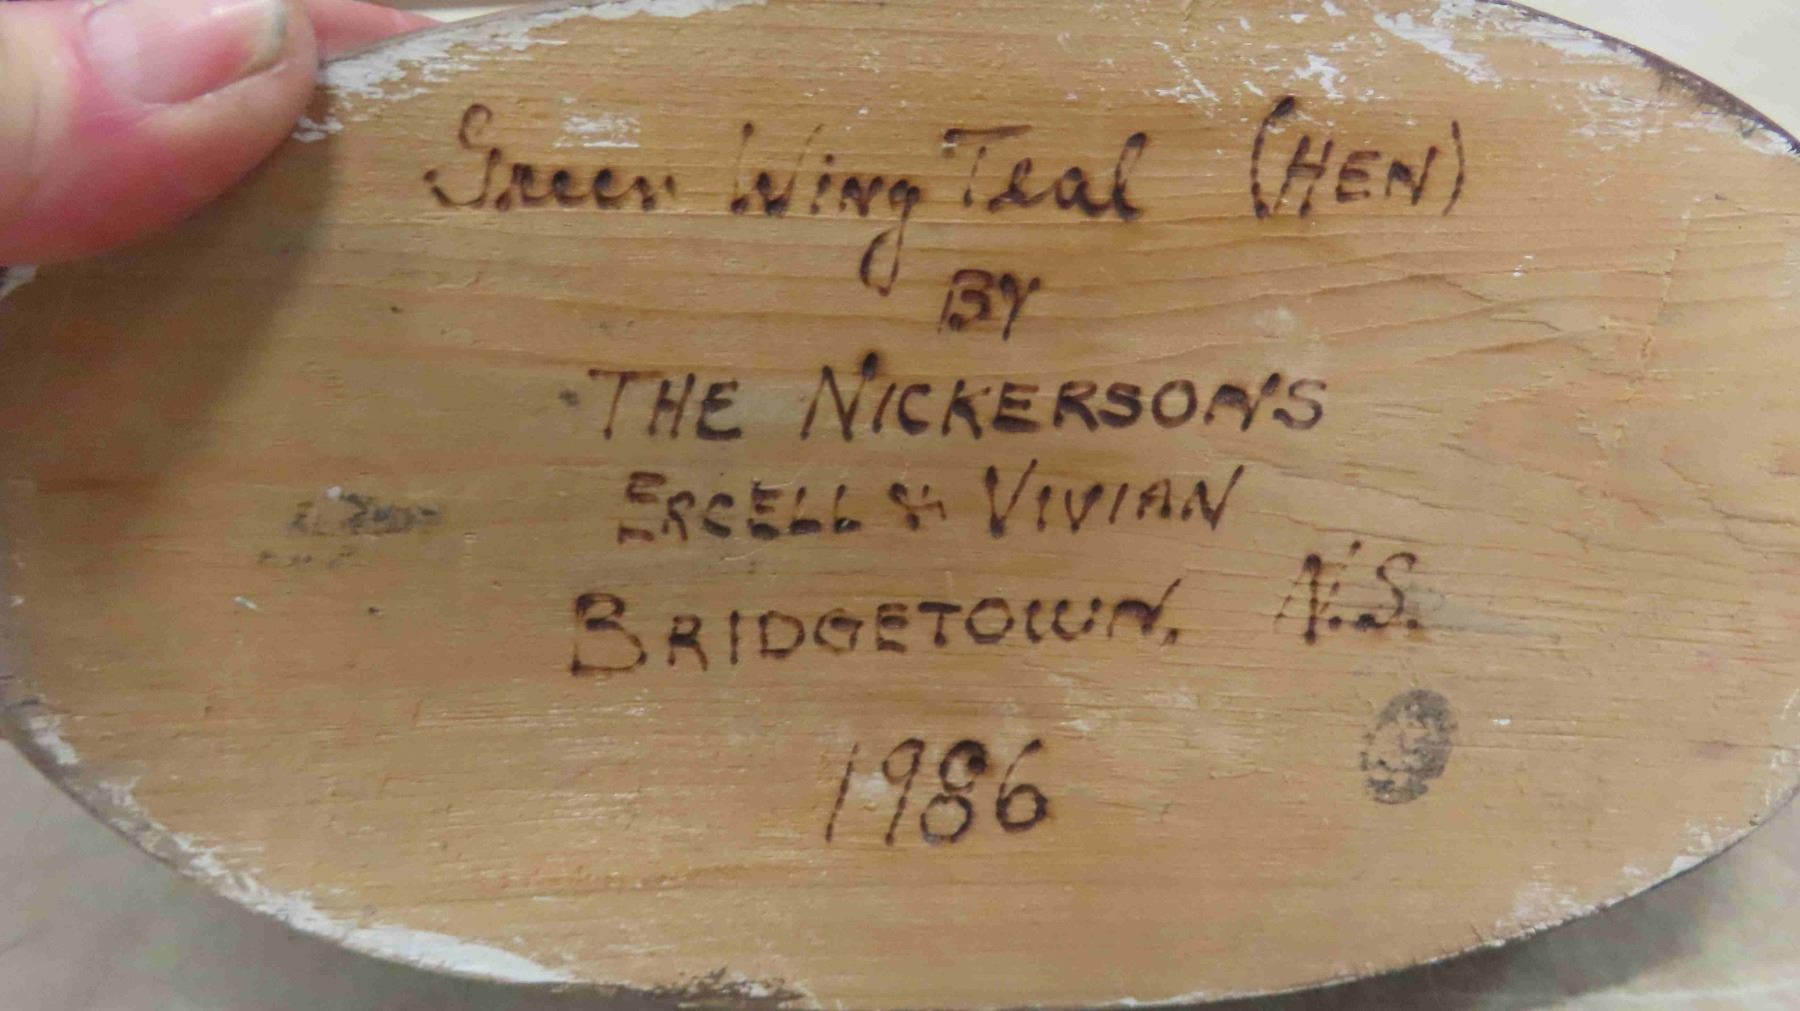 Green Wing Teal (HEN)
BY
THE NICKERSONS
ERCELL & VIVIAN
BRIDGETOWN, N.S.
1986